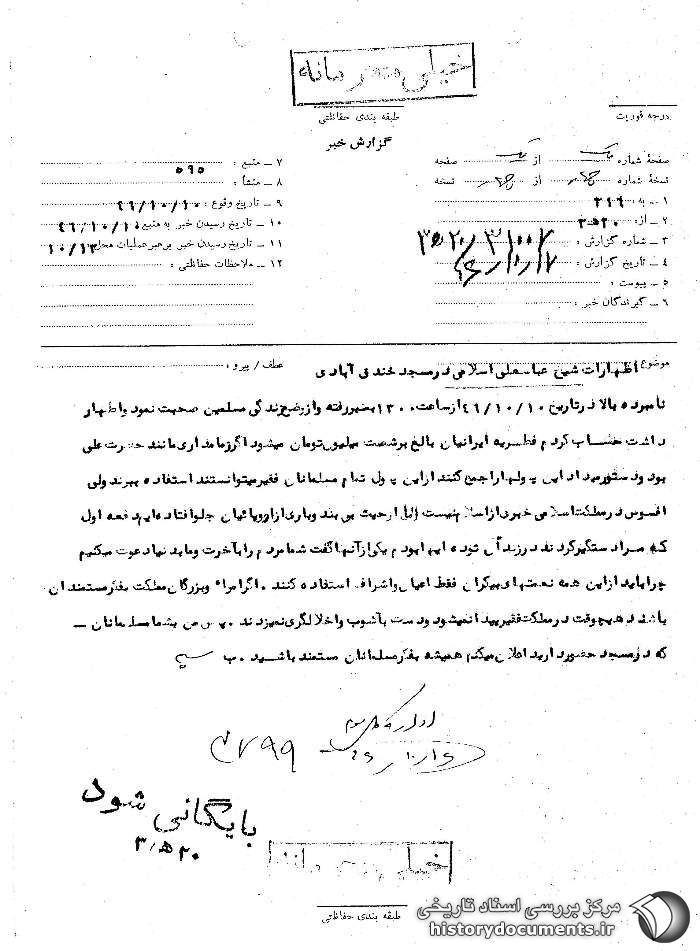 خیلی محرمانه
طبقه بندی حفاظتی
درجه فوریت
گزارش خبر
صفحهٔ شماره یک از یک صفحه
نسخهٔ شماره از نسخه
۱ ــ به : ۳۱۶
۲ ــ از : ۲۰ ه ۳
۳ ــ شماره گزارش :
۴ ــ تاریخ گزارش :
۵ ــ پیوست :
۶ ــ گیرندگان خبر :
۷ ــ منبع : ۵۹۵
۸ ــ منشأ :
۹ ــ تاریخ وقوع : ۴۶/۱۰/۱۰
۱۰ ــ تاریخ رسیدن خبر به منبع : ۴۶/۱۰/۱۰
۱۱ ــ تاریخ رسیدن خبر برهبر عملیات محل : ۱۰/۱۳
۱۲ ــ ملاحظات حفاظتی :
موضوع : اظهارات شیخ عباسعلی اسلامی در مسجد خندق آبادی
عطف / پیرو :
نامبرده بالا در تاریخ ۴۶/۱۰/۱۰ از ساعت ۱۳۰۰ بمنبر رفته و از وضع زندگی مسلمین صحبت نمود و اظهار
داشت حساب کردم فطریه ایرانیان بالغ بر شصت میلیون تومان میشود اگر زمامداری مانند حضرت علی
بود و دستور میداد این پولها را جمع کنند از این پول تمام مسلمانان فقیر میتوانستند استفاده ببرند ولی
افسوس در مملکت اسلامی خبری از اسلام نیست از حیث بی بند و باری از اروپائیان جلو افتاده ایم دفعه اول
که مرا دستگیر کردند در زندان توده ایها بودم یکی از آنها گفت شما مردم را بآخرت و ما بدنیا دعوت میکنیم
چرا باید از این همه نعمتهای بیکران فقط اعیان و اشراف استفاده کنند . اگر امراء و بزرگان مملکت بفکر مستمندان
باشند هیچوقت در مملکت فقیر پیدا نمیشود و دست بآشوب و اخلالگری نمیزدند . پس من بشما مسلمانان ــ
که در مسجد حضور دارید اعلان میکنم همیشه بفکر مسلمانان مستمند باشید . ب
اداره کل سوم
بایگانی شود
۲۰ ه ۳
خیلی محرمانه
طبقه بندی حفاظتی
مرکز بررسی اسناد تاریخی
historydocuments.ir